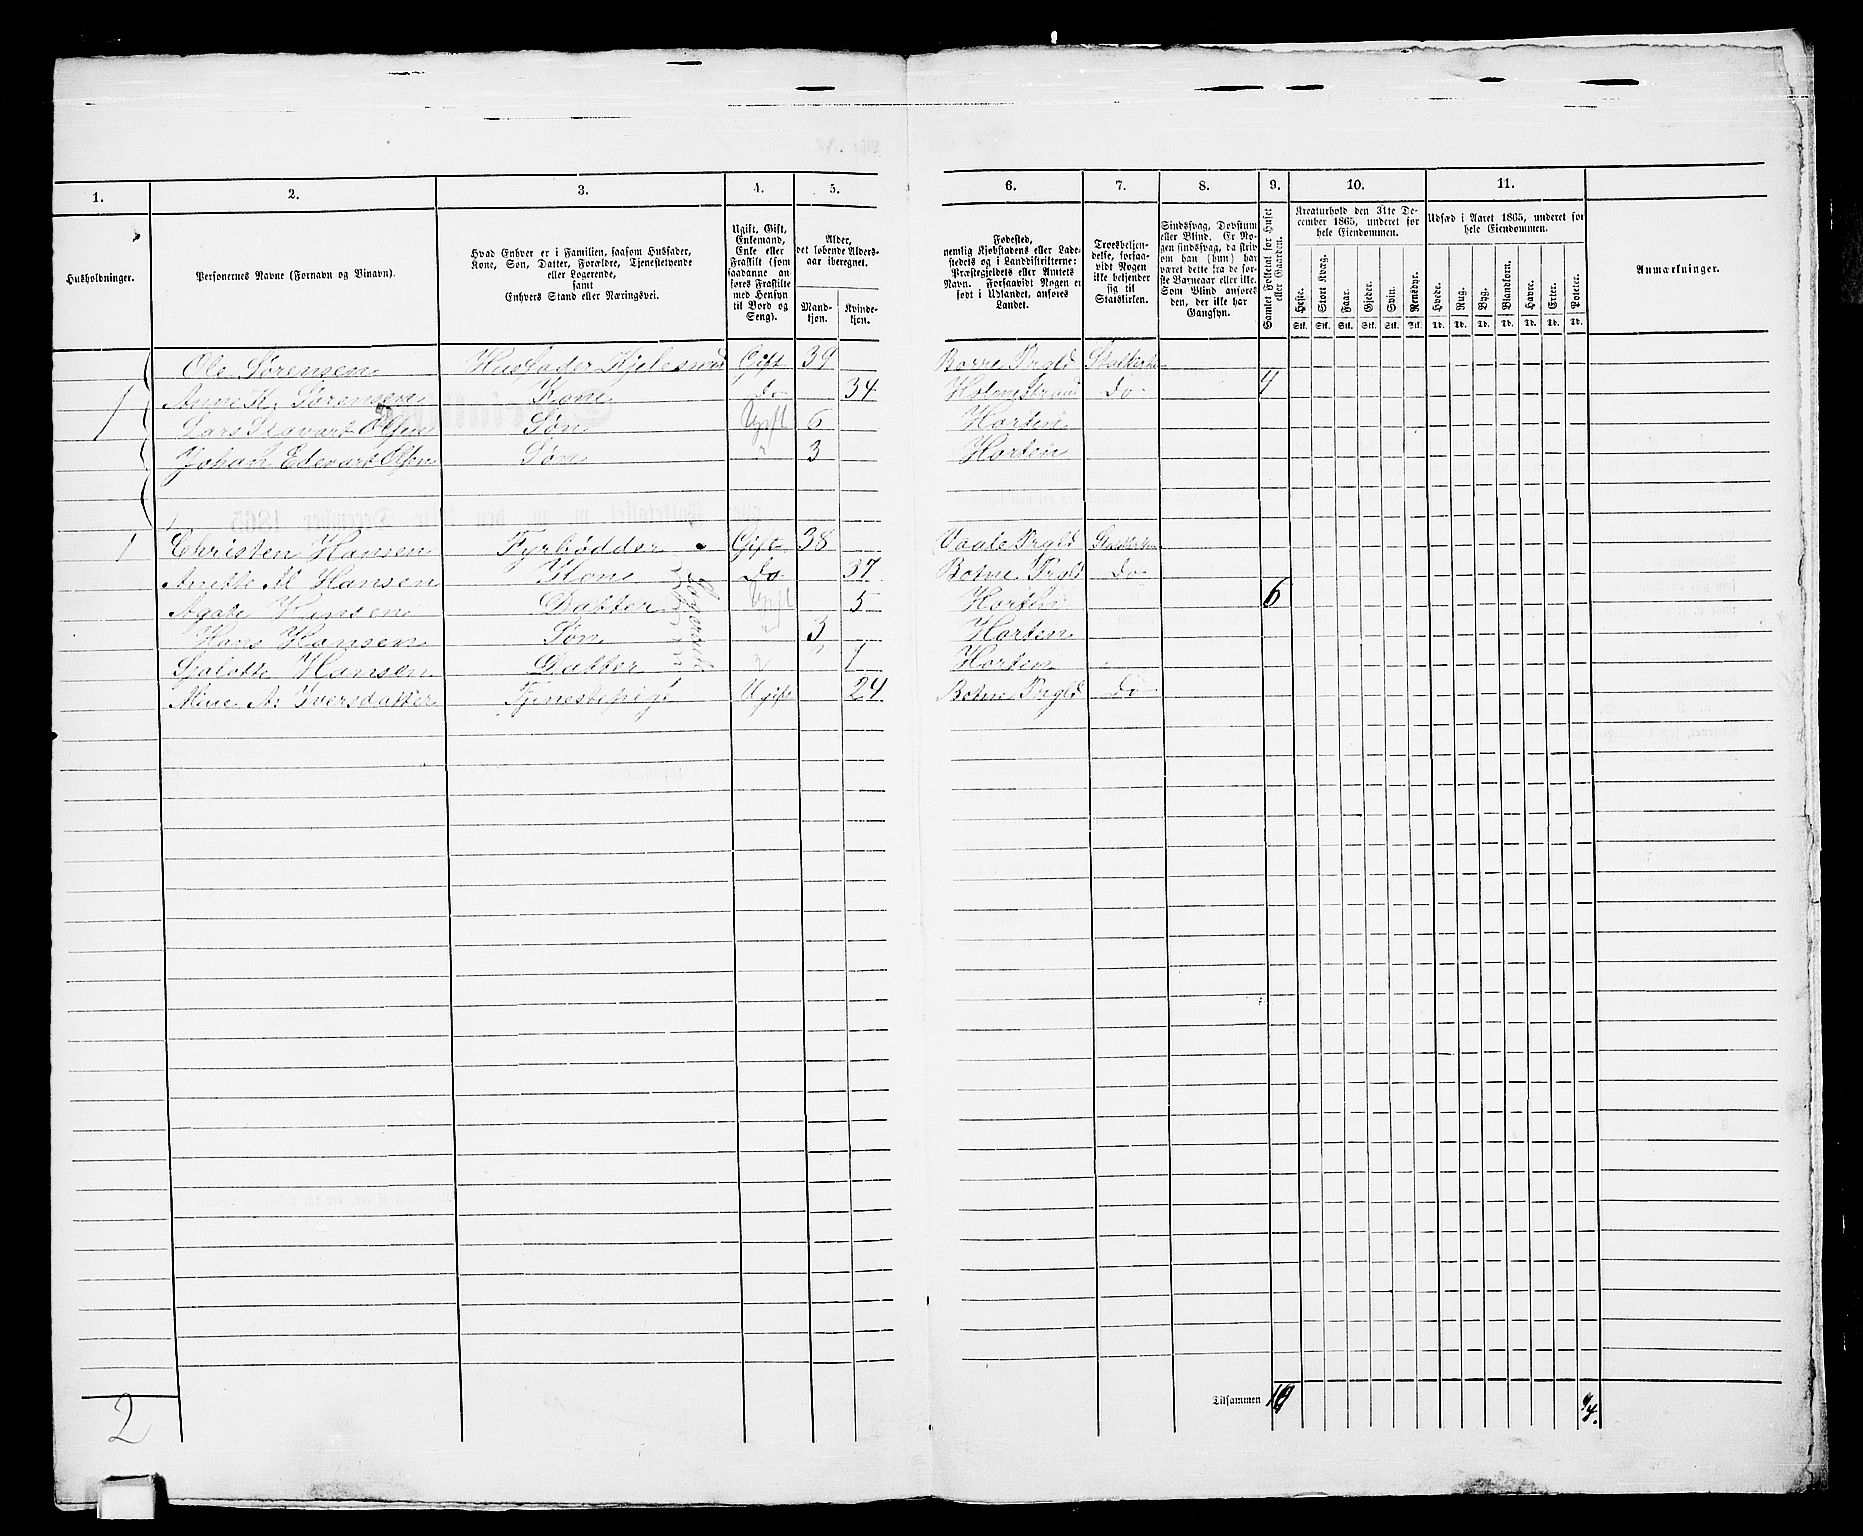 1.
2.
3.
4.
5.
6.
7.
8.
9.
10.
11.
Husholdninger.
Personernes Navne (Fornavn og Binavn).
Hvad Enhver er i Familien, saasom Husfader,
Kone, Søn, Datter, Forældre, Tjenestetyende
eller Logerende,
samt
Enhvers Stand eller Næringsvei.
Ugift, Gift,
Enkemand,
Enke eller
Fraskilt (som
saadanne an-
føres Fraskilte
med Hensyn
til Bord og
Seng).
Alder,
det løbende Alders-
aar iberegnet.
Mand-
kjøn.
Kvinde-
kjøn.
Fødested,
nemlig Kjøbstadens eller Lade-
stedets og i Landdistrikterne:
Præstegjeldets eller Amtets
Navn. Forsaavidt Nogen er
født i Udlandet, anføres
Landet.
Troesbekjen-
delse, forsaa-
vidt Nogen
ikke bekjender
sig til
Statskirken.
Sindssvag, Døvstum
eller Blind. Er No-
gen sindssvag, da skriv
om han (hun) har
været dette fra de før-
ste Barneaar eller ikke.
Som Blind anføres
den, der ikke har
Gangsyn.
Samlet Folketal for Huset
eller Gaarden.
Kreaturhold den 31te De-
cember 1865, underet for
hele Eiendommen.
Heste.
Stort Kvæg.
Faar.
Gjeder.
Svin.
Rensdyr.
Stk. Stk. Stk. Stk. Stk. Stk.
Udsæd i Aaret 1865, underet for
hele Eiendommen.
Hvede.
Rug.
Byg.
Blandkorn.
Havre.
Erter.
Poteter.
Td. Td. Td. Td. Td. Td. Td.
Anmærkninger.
Ole Sørensen Husfader Gift 39 Borre Prgld
1 Anne K. Sørensen Kone do 34 Holmestrand do 4
Lars Olsen Søn Ugift 6 Horten
Johan Edevart Olsen Søn " 3 Horten
1 Christen Hansen Fyrbødder Gift 38 Vaale Prgld
Anette M Hansen Kone do 37 Botne Prgld do
Agate Hansen Datter Ugift 5 Horten 6
Hans Hansen Søn " 3 Horten
Hansen Datter " 1 Horten
A. Iversdatter Tjenestepige Ugift 24 Botne Prgld do
Tilsammen 10
2